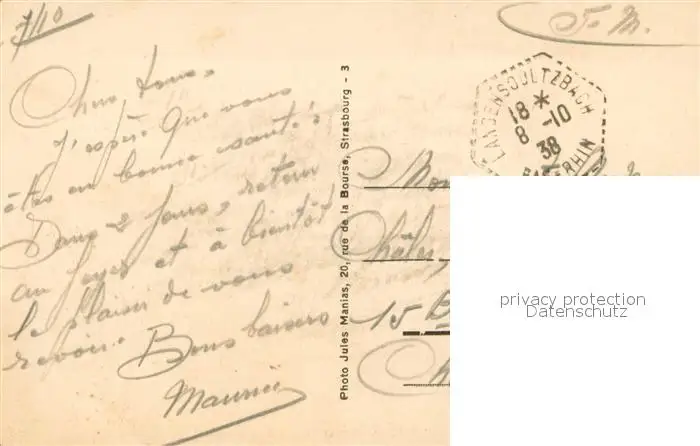 7/10
Chers tous,
J'espère que vous
êtes en bonne santé.
Dans 2 jours, retour
au foyer et à bientôt
le plaisir de vous
revoir. Bons baisers
Maurice
Photo Jules Manias, 20, rue de la Bourse, Strasbourg - 3
F. M.
LANGENSOULTZBACH
18 *
8 -10
38
BAS RHIN
15 B
privacy protection
Datenschutz